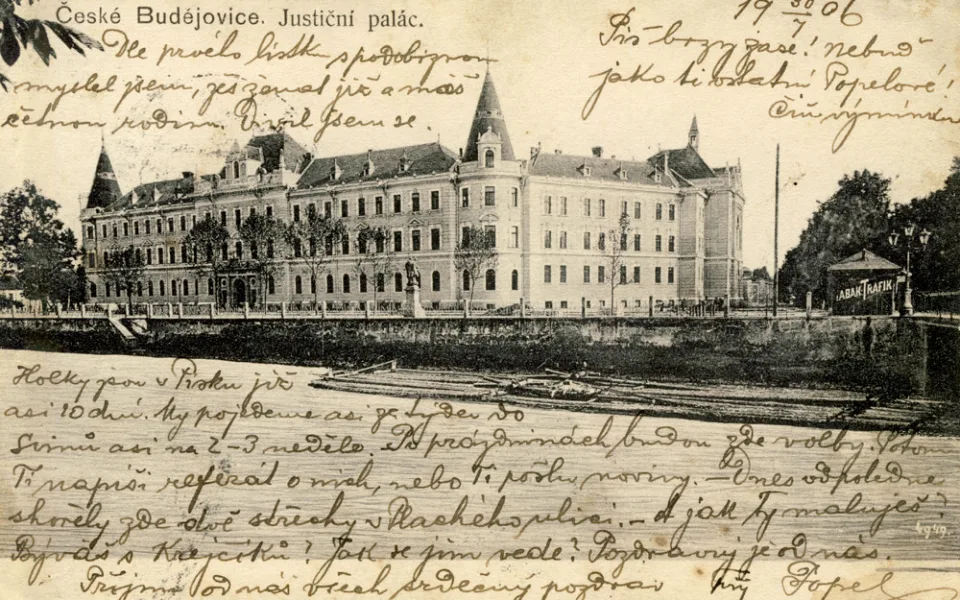 České Budějovice. Justiční palác.
19 30/7 06
Dle prvého lístku s podobiznou
myslel jsem, žes ženat již a máš
četnou rodinu. jsem se.
Piš brzy zase! Nebuď
jako ti ostatní Popelové!
Čiň výminku
TABAK TRAFIK
Holky jsou v Písku již
asi 10 dnů. My pojedeme asi za týden do
Svinů asi na 2-3 neděle. Po prázdninách budou zde volby. Potom
Ti napíši referát o nich, nebo Ti pošlu noviny. – Dnes odpoledne
shořely zde dvě střechy v Plachého ulici. – A jak Ty maluješ?
4949.
Býváš s Krejčíků? Jak se jim vede? Pozdravuj je od nás.
Přijmi od nás všech srdečný pozdrav Popel